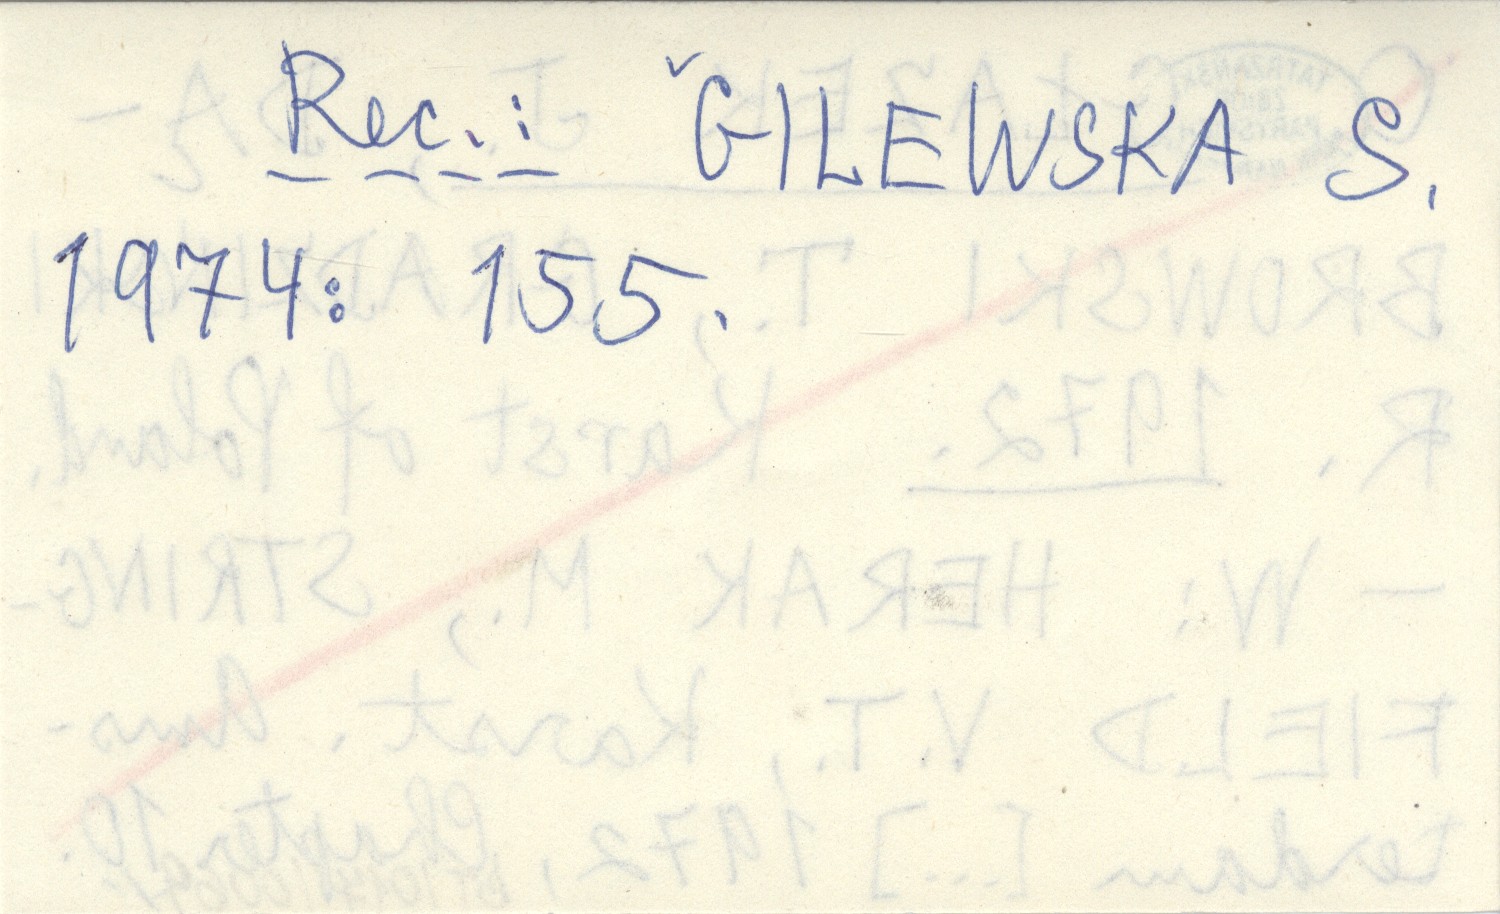 Rec.: ˇGILEWSKA S.
1974: 155.